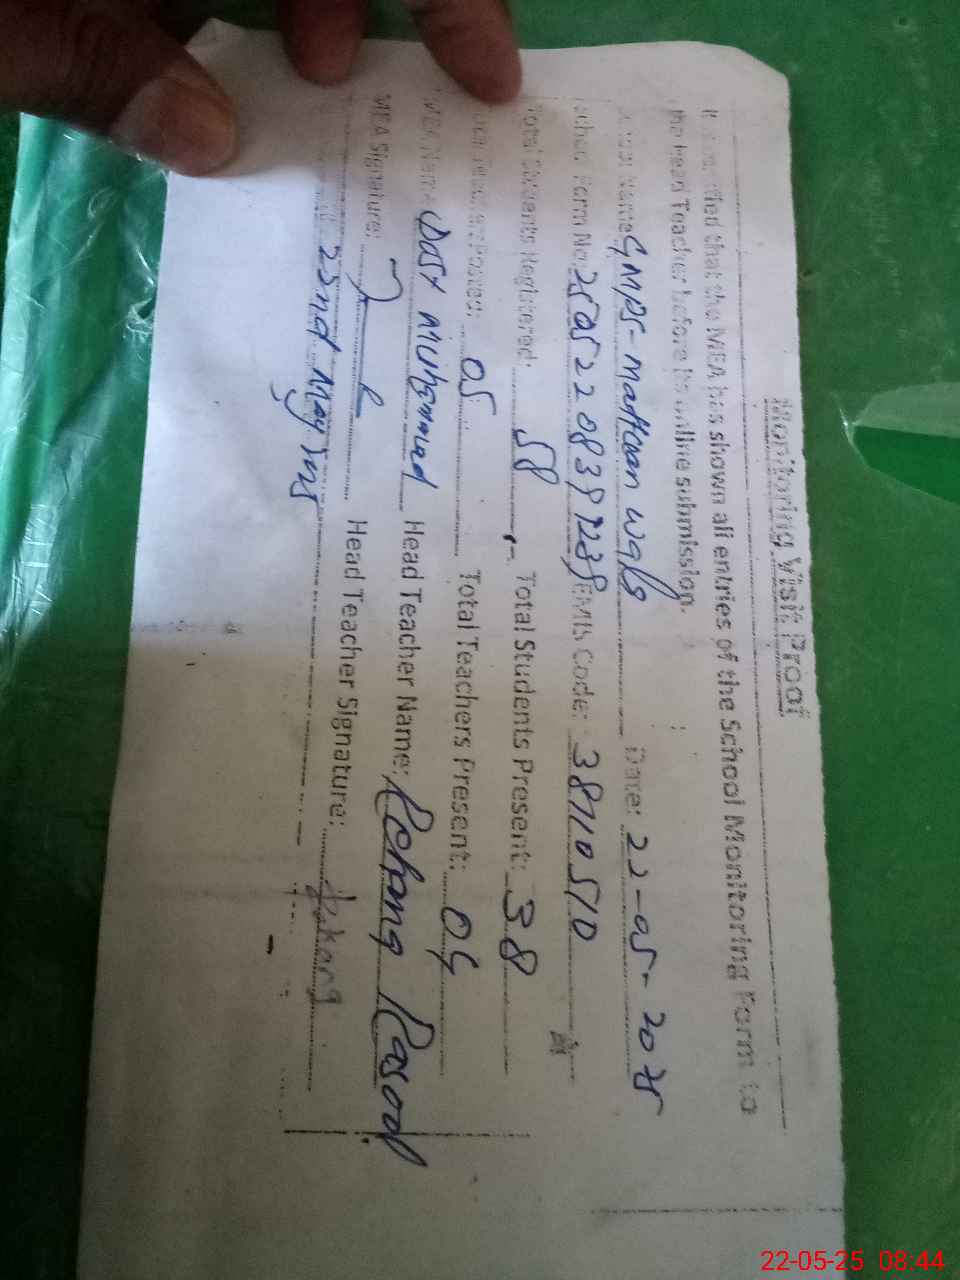 Monitoring Visit Proof
It is certified that the MEA has shown all entries of the School Monitoring Form to
the Head Teacher before its online submission.
School Name GMPS-Mattcan wala Date: 22-05-2025
School Form No. EMIS Code: 38710510
Total Students Registered: 58 Total Students Present: 38
Total Teachers Posted: 05 Total Teachers Present: 04
MEA Name Dost Muhammad Head Teacher Name: Rehana Rasool
MEA Signature: Head Teacher Signature: Rehana
22nd May
22-05-25 08:44